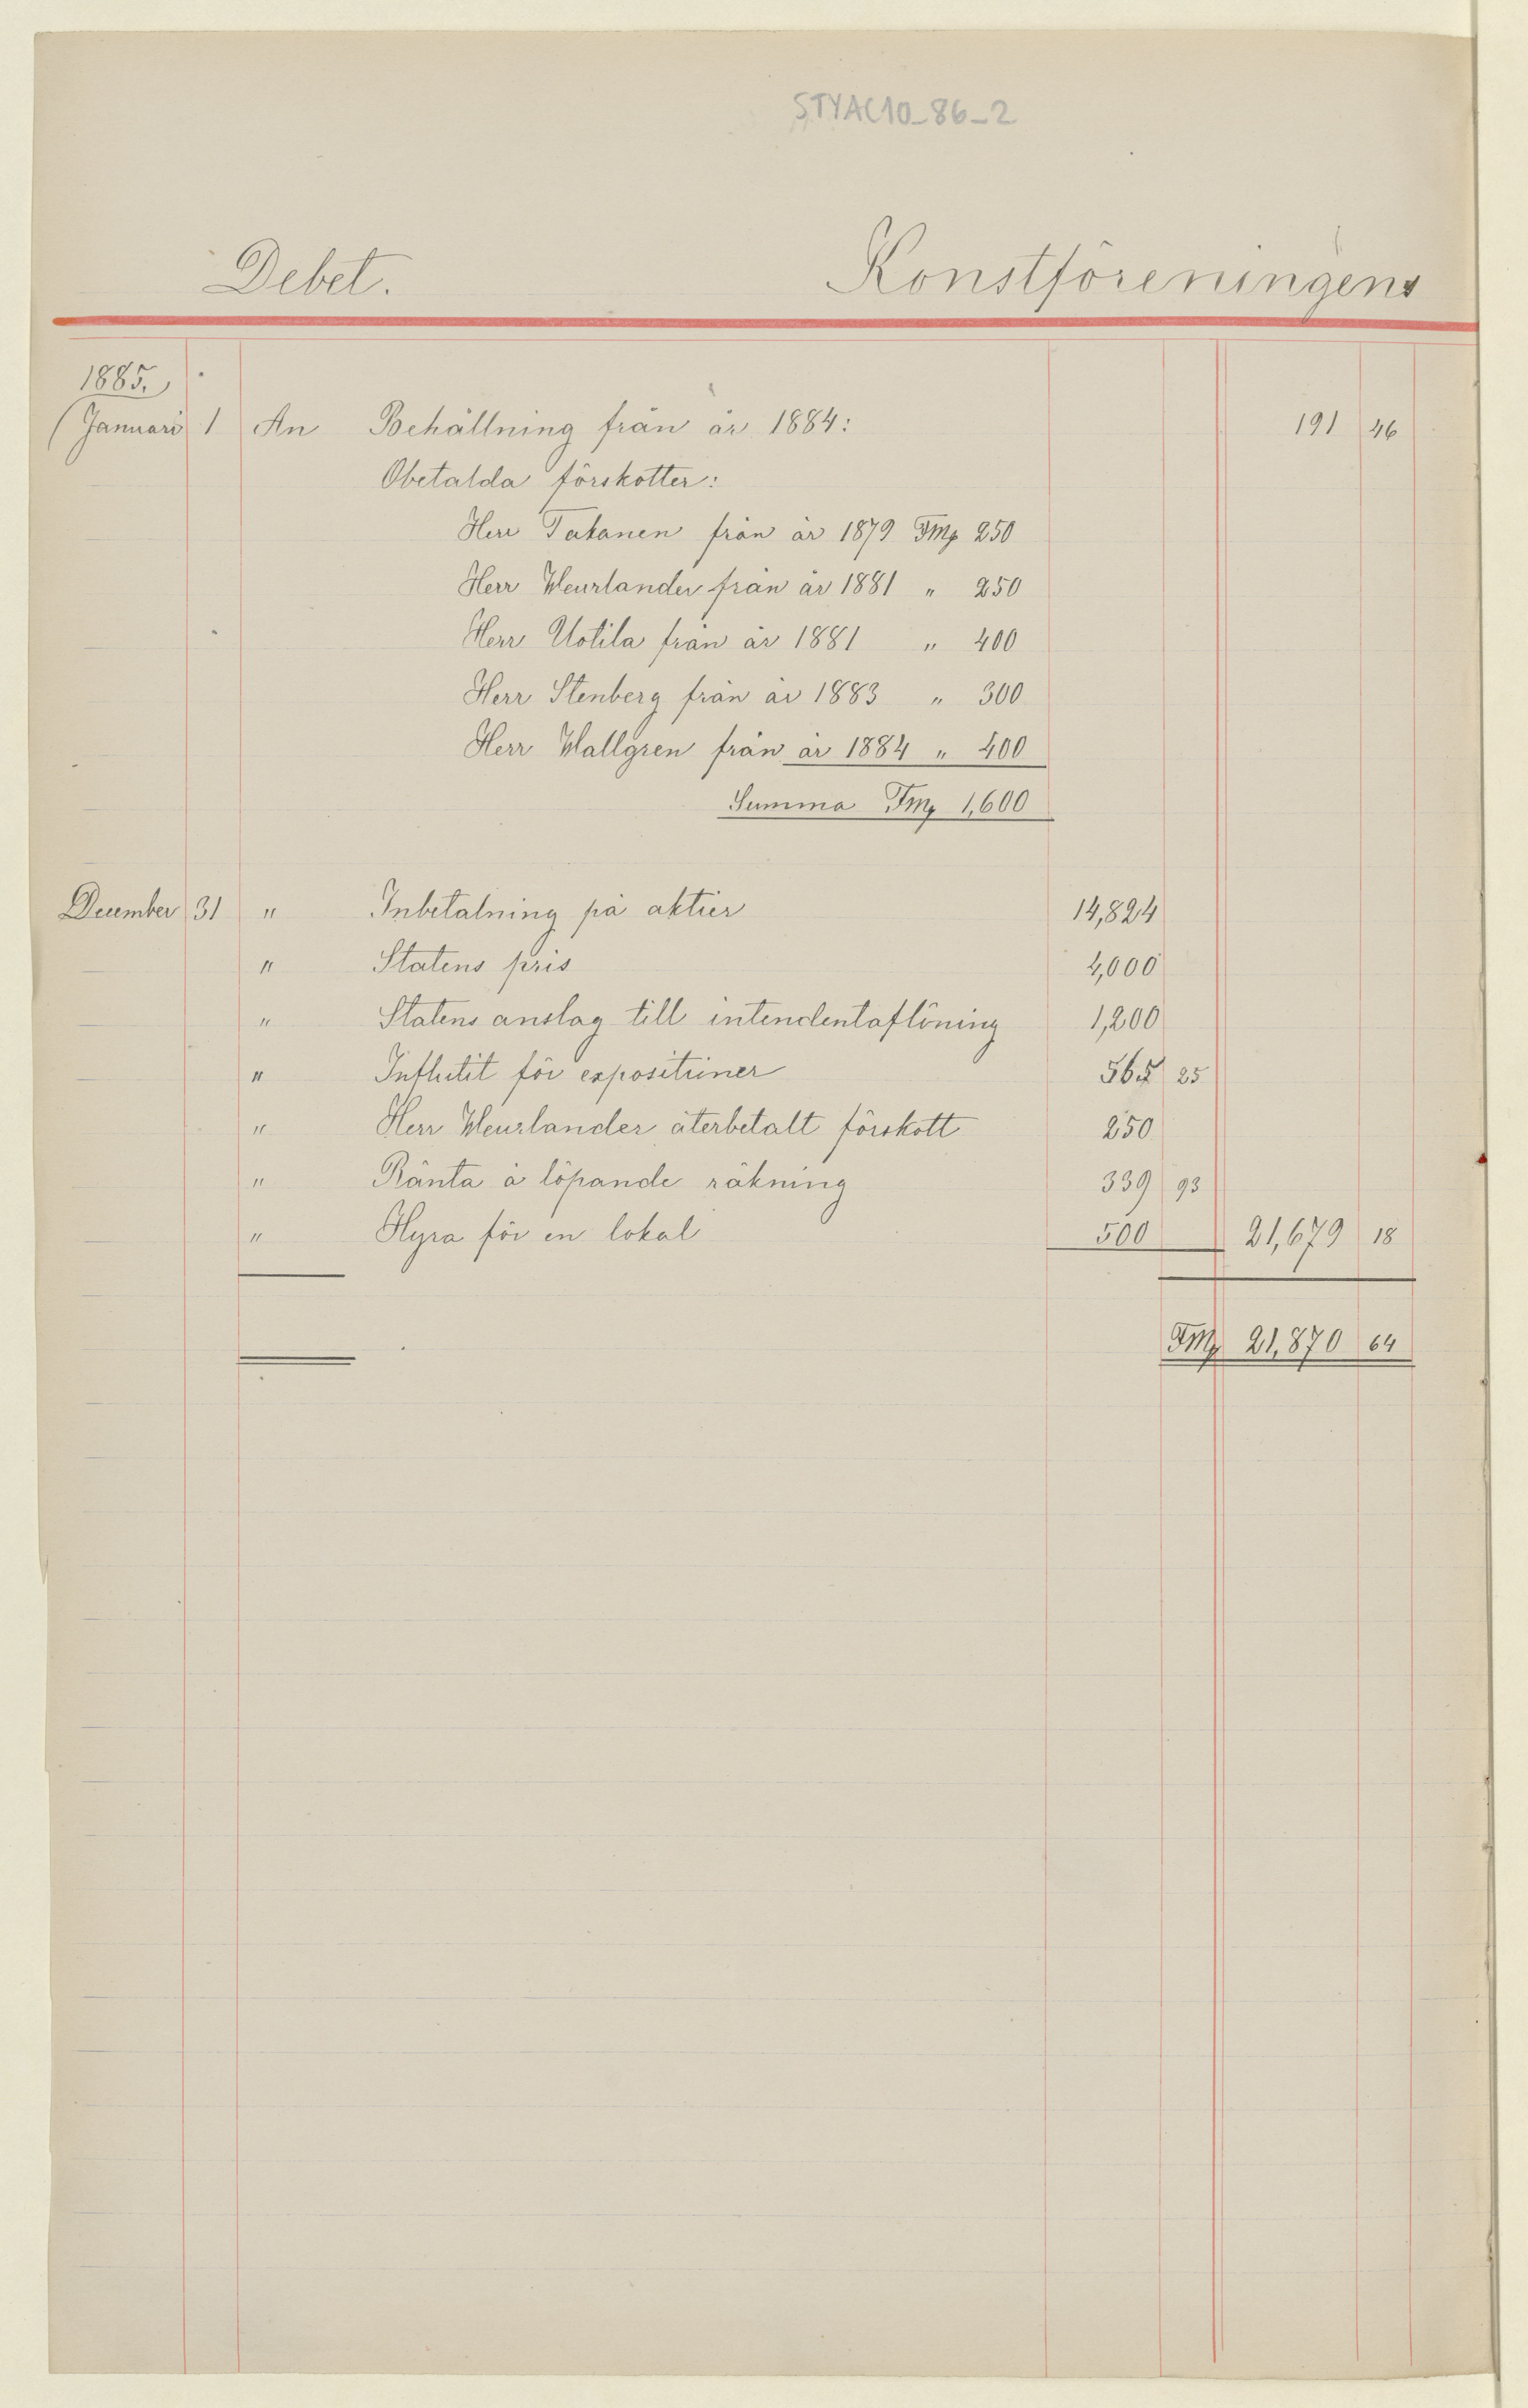 STYAC10_86_2
Debet. Konstföreningens
1885.
Januari 1 An Behållning från år 1884: 191 46
Obetalda förskotter:
Herr Takanen från år 1879 Fmk 250
Herr Weurlander från år 1881 " 250
Herr Uotila från år 1881 " 400
Herr Stenberg från år 1883 " 300
Herr Wallgren från år 1884 " 400
Summa Fmk 1,600
December 31 " Inbetalning på aktier 14,824
" Statens pris 4,000
" Statens anslag till intendentaflöning 1,200
" Influtit för expositioner 565 25
" Herr Weurlander återbetalt förskott 250
" Ränta à löpande räkning 339 93
" Hyra för en lokal 500 21,679 18
Fmk 21,870 64